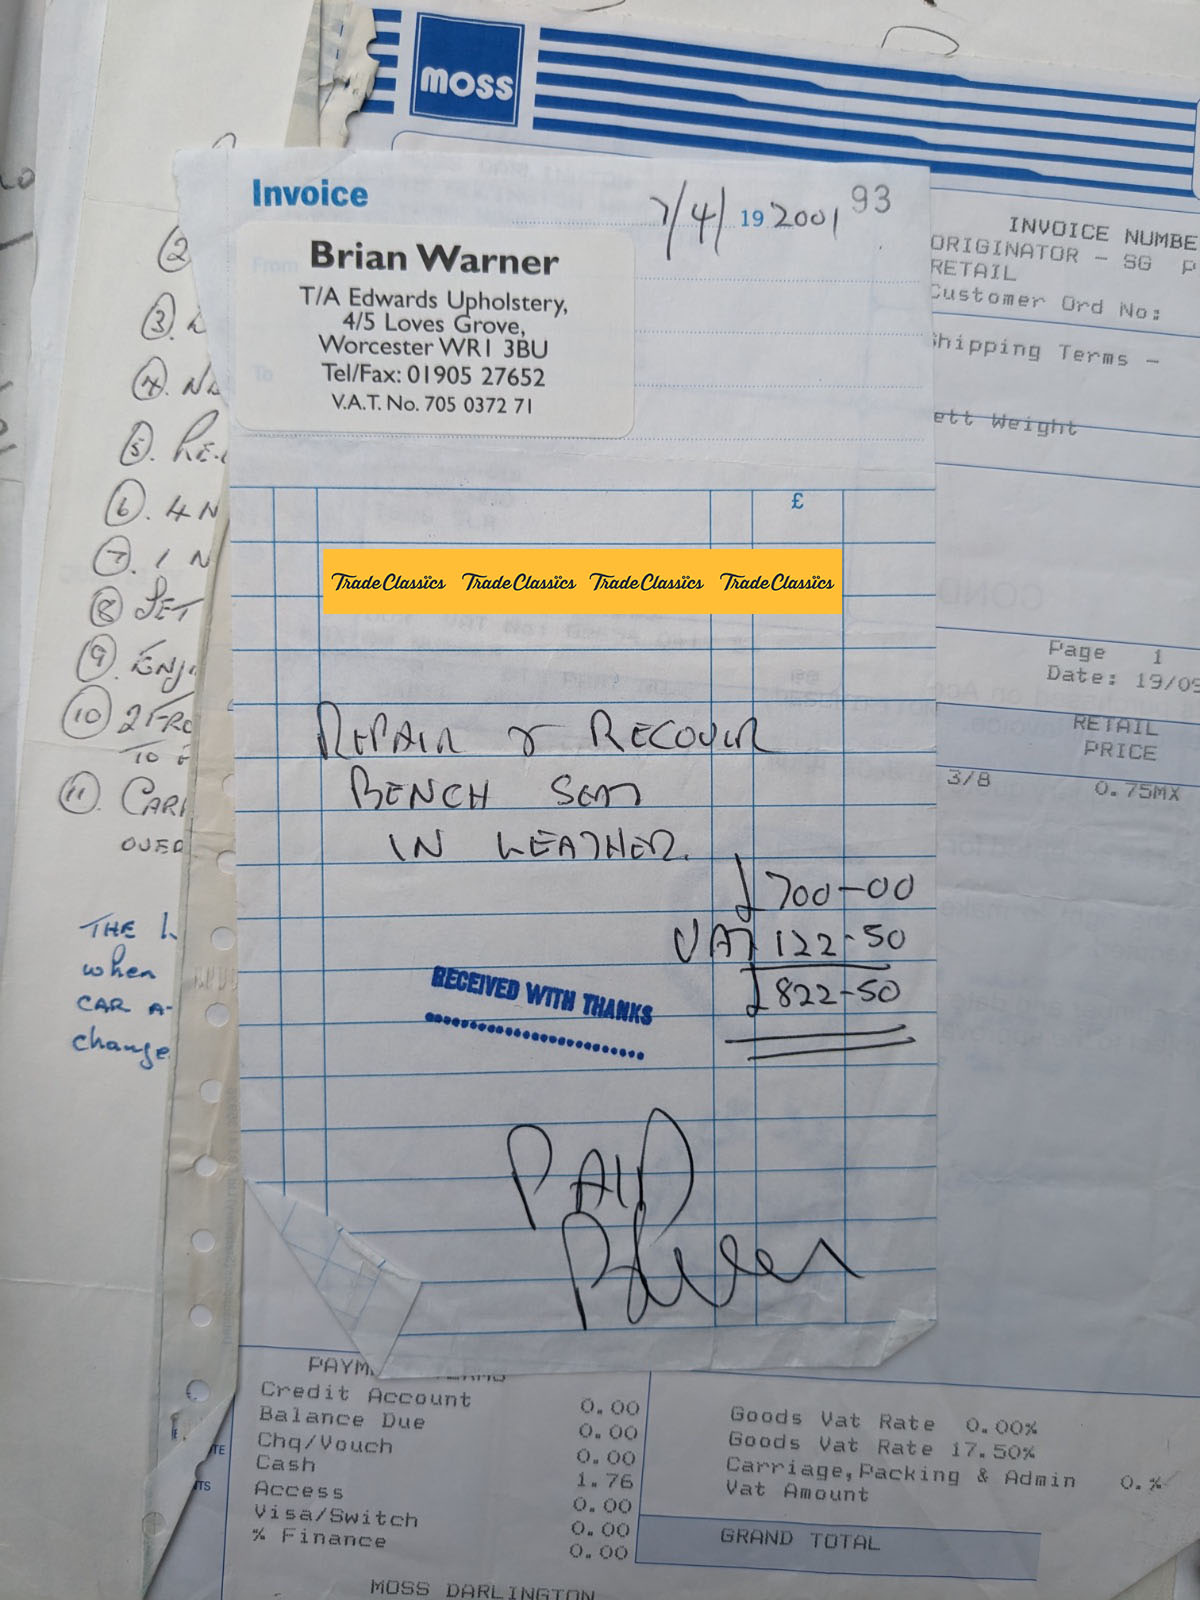 moss
Invoice
7/4/ 19 2001 93
From
Brian Warner
T/A Edwards Upholstery,
4/5 Loves Grove,
Worcester WR1 3BU
Tel/Fax: 01905 27652
V.A.T. No. 705 0372 71
To
£
TradeClassics TradeClassics TradeClassics TradeClassics
REPAIR & RECOVER
BENCH SEAT
IN LEATHER.
£700-00
VAT 122-50
£822-50
RECEIVED WITH THANKS
PAID
INVOICE NUMBE
ORIGINATOR - SG P
RETAIL
Customer Ord No:
Shipping Terms -
ett Weight
COND
Page 1
Date: 19/09
RETAIL
PRICE
3/8 0.75MX
2
3.
4.
5.
6. 4 N
7. 1 N
8 SET
9.
10 2 FRO
TO
11. CAR
OVER
THE
when
CAR A
change
PAYM
Credit Account 0.00
Balance Due 0.00
Chq/Vouch 0.00
Cash 1.76
Access 0.00
Visa/Switch 0.00
% Finance 0.00
Goods Vat Rate 0.00%
Goods Vat Rate 17.50%
Carriage,Packing & Admin 0.%
Vat Amount
GRAND TOTAL
MOSS DARLINGTON